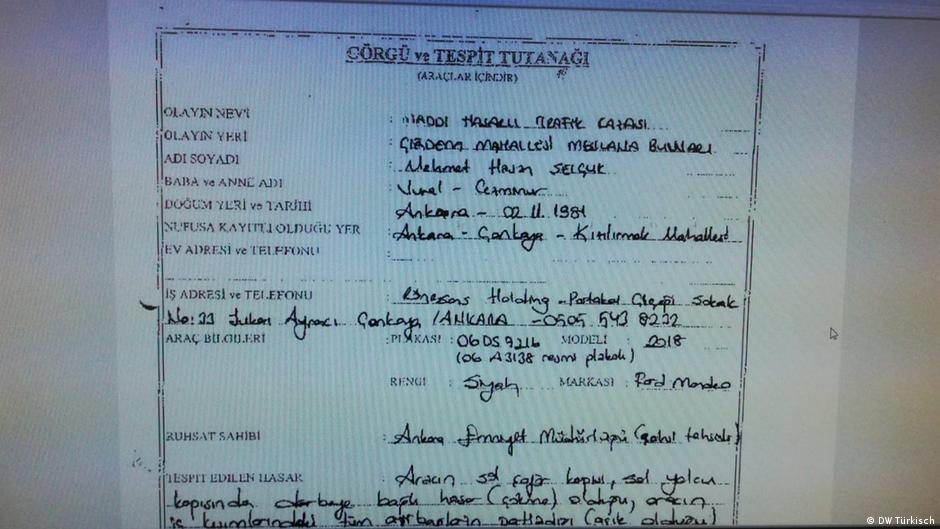 GÖRGÜ ve TESPİT TUTANAĞI
(ARAÇLAR İÇİNDİR)
OLAYIN NEV'İ : MADDİ HASARLI TRAFİK KAZASI
OLAYIN YERİ : ÇİĞDEM MAHALLESİ MEVLANA BULVARI
ADI SOYADI : Mehmet Hasan SELÇUK
BABA ve ANNE ADI : Vural -
DOĞUM YERİ ve TARİHİ : Ankara - 02.11.1981
NÜFUSA KAYITLI OLDUĞU YER : Ankara - Çankaya - Kızılırmak Mahallesi
EV ADRESİ ve TELEFONU :
İŞ ADRESİ ve TELEFONU : Rönesans Holding - Portakal Çiçeği Sokak
No:33 Yukarı Ayrancı Çankaya /ANKARA - 0505 543 8272
ARAÇ BİLGİLERİ : PLAKASI : 06 DS 9216 MODELİ : 2018
(06 A 3138 resmi plakalı)
RENGİ : Siyah MARKASI : Ford Mondeo
RUHSAT SAHİBİ : Ankara Emniyet Müdürlüğü (
TESPİT EDİLEN HASAR : Aracın sol kapısı, sol yolcu
kapısında darbeye bağlı hasar (çökme) olduğu, aracın
iç kısımlarındaki tüm airbagların patladığı (açık olduğu)
© DW Türkisch